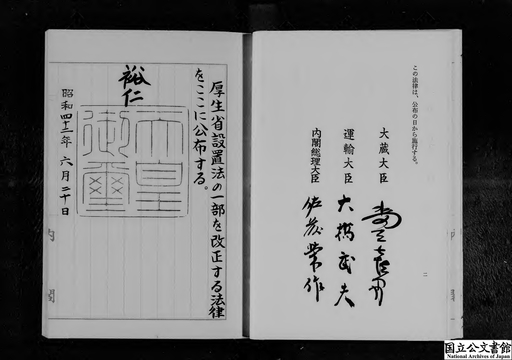 この法律は、公布の日から施行する。
大蔵大臣
運輸大臣 大橋武夫
内閣総理大臣 佐藤榮作
二
厚生省設置法の一部を改正する法律
をここに公布する。
裕仁
天皇
御璽
昭和四十二年六月二十日
国立公文書館
National Archives of Japan